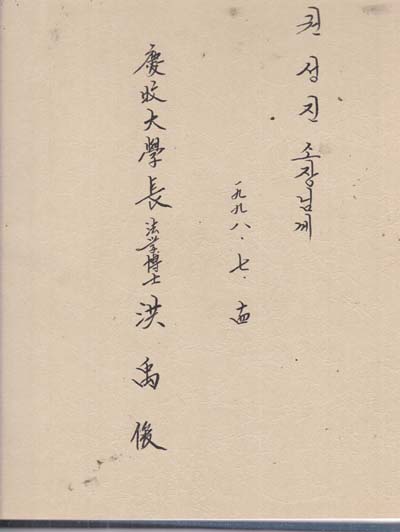 권 성 진 소장님께
一九九八. 七.
慶旼大學長 法学博士 洪 禹 俊